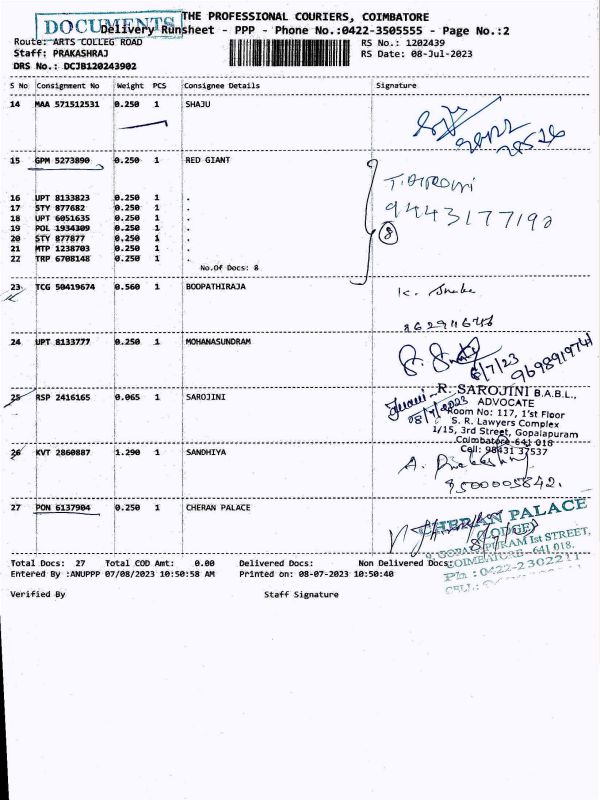 DOCUMENTS
THE PROFESSIONAL COURIERS, COIMBATORE
Delivery Runsheet - PPP - Phone No.:0422-3505555 - Page No.:2
Route: ARTS COLLEG ROAD
RS No.: 1202439
Staff: PRAKASHRAJ
RS Date: 08-Jul-2023
DRS No.: DCJB120243902
S No Consignment No Weight PCS Consignee Details Signature
14 MAA 571512531 0.250 1 SHAJU
15 GPM 5273890 0.250 1 RED GIANT
9443177190
16 UPT 8133823 0.250 1 .
17 STY 877682 0.250 1 .
18 UPT 6051635 0.250 1 .
19 POL 1934309 0.250 1 .
8
20 STY 877877 0.250 1 .
21 MTP 1238703 0.250 1 .
22 TRP 6708148 0.250 1 .
No.Of Docs: 8
23 TCG 50419674 0.560 1 BOOPATHIRAJA
24 UPT 8133777 0.250 1 MOHANASUNDRAM
9698919741
25 RSP 2416165 0.065 1 SAROJINI
R. SAROJINI B.A.B.L.,
ADVOCATE
Room No: 117, 1'st Floor
S. R. Lawyers Complex
1/15, 3rd Street, Gopalapuram
Coimbatore-641 018
Cell: 98431 37537
26 KVT 2860887 1.290 1 SANDHIYA
8500005842.
27 PON 6137904 0.250 1 CHERAN PALACE
CHERAN PALACE
(LODGE)
9, GOPALAPURAM Ist STREET,
COIMBATORE-641 018.
Ph : 0422-2302211
CELL:
Total Docs: 27 Total COD Amt: 0.00 Delivered Docs: Non Delivered Docs:
Entered By :ANUPPP 07/08/2023 10:50:58 AM Printed on: 08-07-2023 10:50:40
Verified By Staff Signature